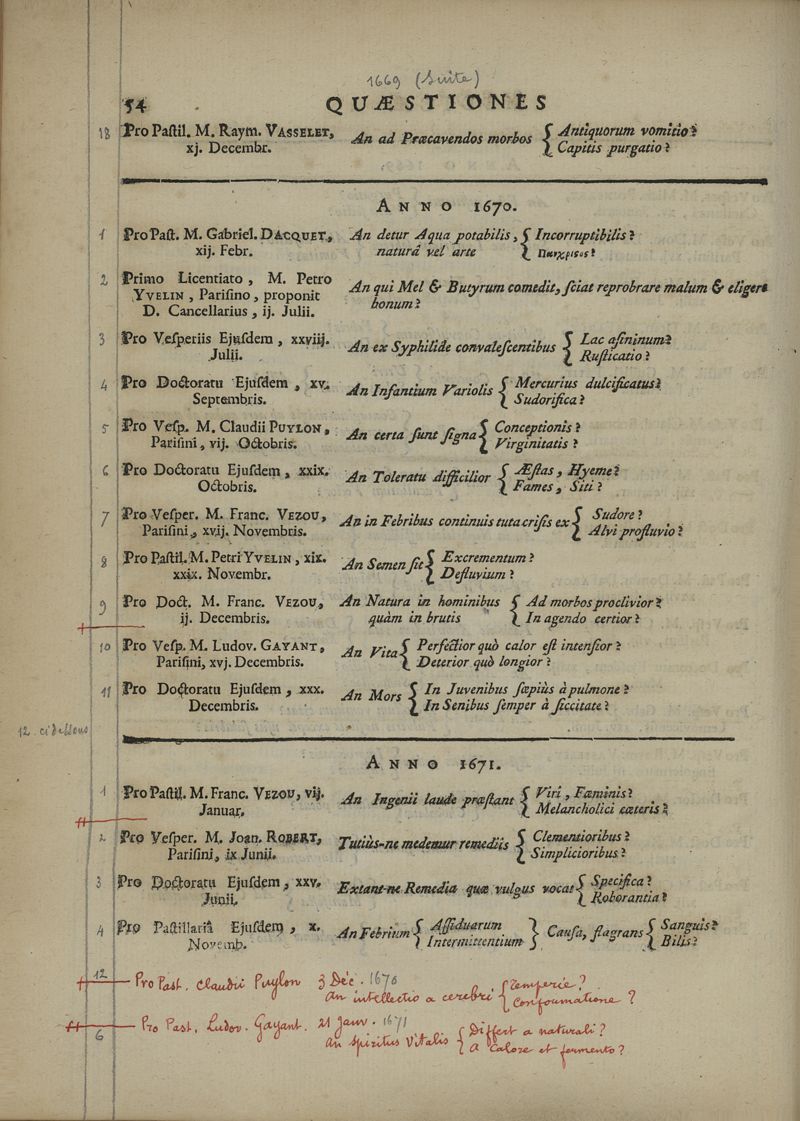 1669 (Suite)
54 QUÆSTIONES
18 Pro Paſtil. M. Raym. VASSELET, An ad Præcavendos morbos { Antiquorum vomitio?
xj. Decembr. Capitis purgatio?
ANNO 1670.
1 Pro Paſt. M. Gabriel. DACQUET, An detur Aqua potabilis, { Incorruptibilis?
xij. Febr. naturâ vel arte
2 Primo Licentiato, M. Petro An qui Mel & Butyrum comedit, ſciat reprobrare malum & eligere
YVELIN, Pariſino, proponit bonum?
D. Cancellarius, ij. Julii.
3 Pro Veſperiis Ejuſdem, xxviij. An ex Syphilide convaleſcentibus { Lac aſininum?
Julii. Ruſticatio?
4 Pro Doctoratu Ejuſdem, xv. An Infantium Variolis { Mercurius dulcificatus?
Septembris. Sudorifica?
5 Pro Veſp. M. Claudii PUYLON, An certa ſunt ſigna { Conceptionis?
Pariſini, vij. Octobris. Virginitatis?
6 Pro Doctoratu Ejuſdem, xxix. An Toleratu difficilior { Æſtas, Hyeme?
Octobris. Fames, Siti?
7 Pro Veſper. M. Franc. VEZOU, An in Febribus continuis tuta criſis ex { Sudore?
Pariſini, xvij. Novembris. Alvi profluvio?
8 Pro Paſtil. M. Petri YVELIN, xix. An Semen ſit { Excrementum?
xxix. Novembr. Defluvium?
9 Pro Doct. M. Franc. VEZOU, An Natura in hominibus { Ad morbos proclivior?
ij. Decembris. quàm in brutis In agendo certior?
10 Pro Veſp. M. Ludov. GAYANT, An Vita { Perfectior quò calor eſt intenſior?
Pariſini, xvj. Decembris. Deterior quò longior?
11 Pro Doctoratu Ejuſdem, xxx. An Mors { In Juvenibus ſæpiùs à pulmone?
Decembris. In Senibus ſemper à ſiccitate?
12 ci dessous
ANNO 1671.
1 Pro Paſtil. M. Franc. VEZOU, vij. An Ingenii laude præſtant { Viri, Fæminis?
Januar. Melancholici cæteris?
2 Pro Veſper. M. Joan. ROBERT, Tutiùs-ne medemur remediis { Clementioribus?
Pariſini, ix Junii. Simplicioribus?
3 Pro Doctoratu Ejuſdem, xxv. Extant-ne Remedia quæ vulgus vocat { Specifica?
Junii. Roborantia?
4 Pro Paſtillariâ Ejuſdem, x. An Febrium { Aſſiduarum } Cauſa, flagrans { Sanguis?
Novemb. Intermittentium Bilis?
12 Pro Past. Claudii Puylon 3 Déc. 1670
An intellectio a cerebri { temperie?
conformatione?
6 Pro Past. Ludov. Gayant. 21 Janv. 1671
An spiritus vitalis { Differt a naturali?
A calore et fermento?